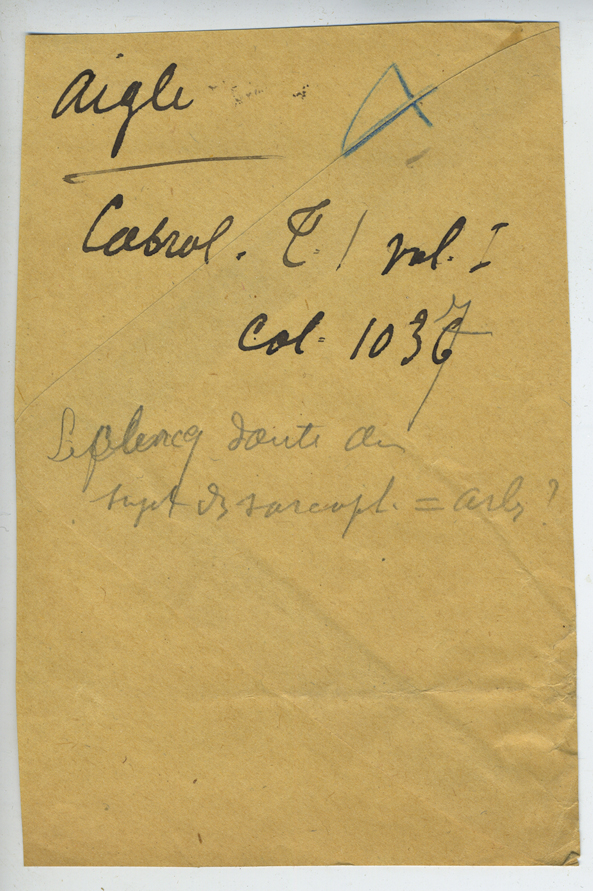 aigle
Cabrol. T. 1 vol. I
Col. 1037
doute du
sujet des sarcoph. = arles?